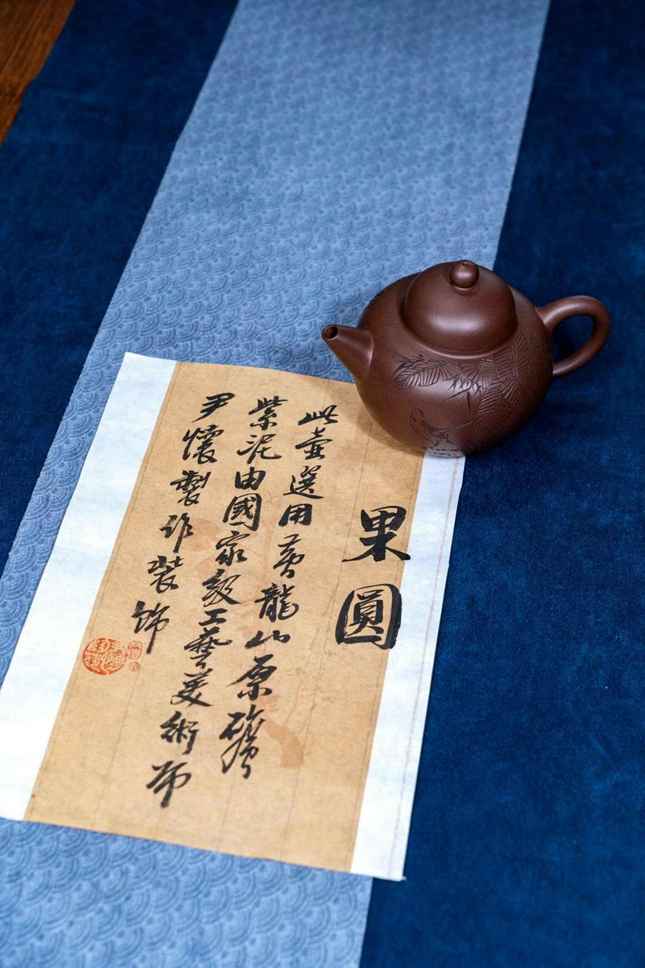 果圓
此壺選用黃龍山原礦
紫泥由國家級工藝美術師
尹懷製作裝飾